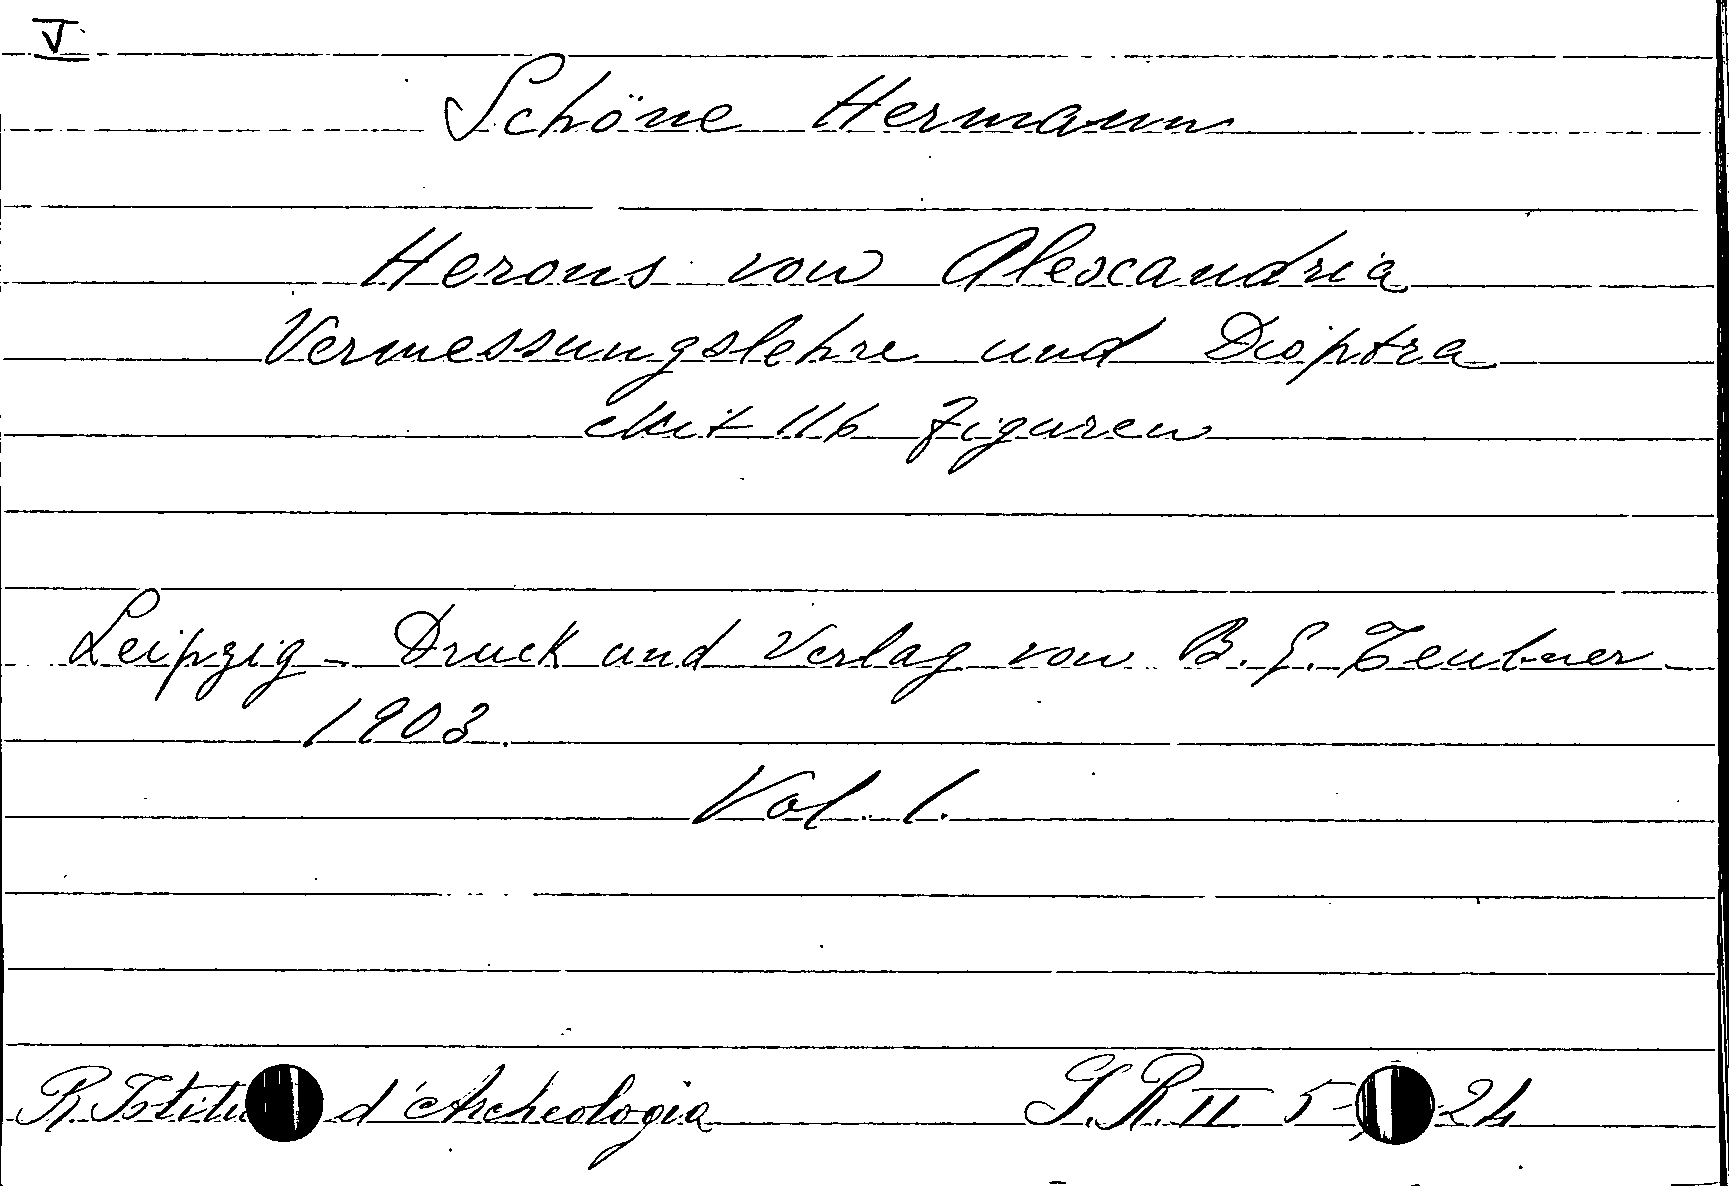 V
Schöne Hermann
Herons von Alexandria
Vermessungslehre und Dioptra
Mit 116 Figuren
Leipzig - Druck und Verlag von B. G. Teubner
1903.
Vol. 1.
R. Istitu d'Archeologia S.R. II 5- 24